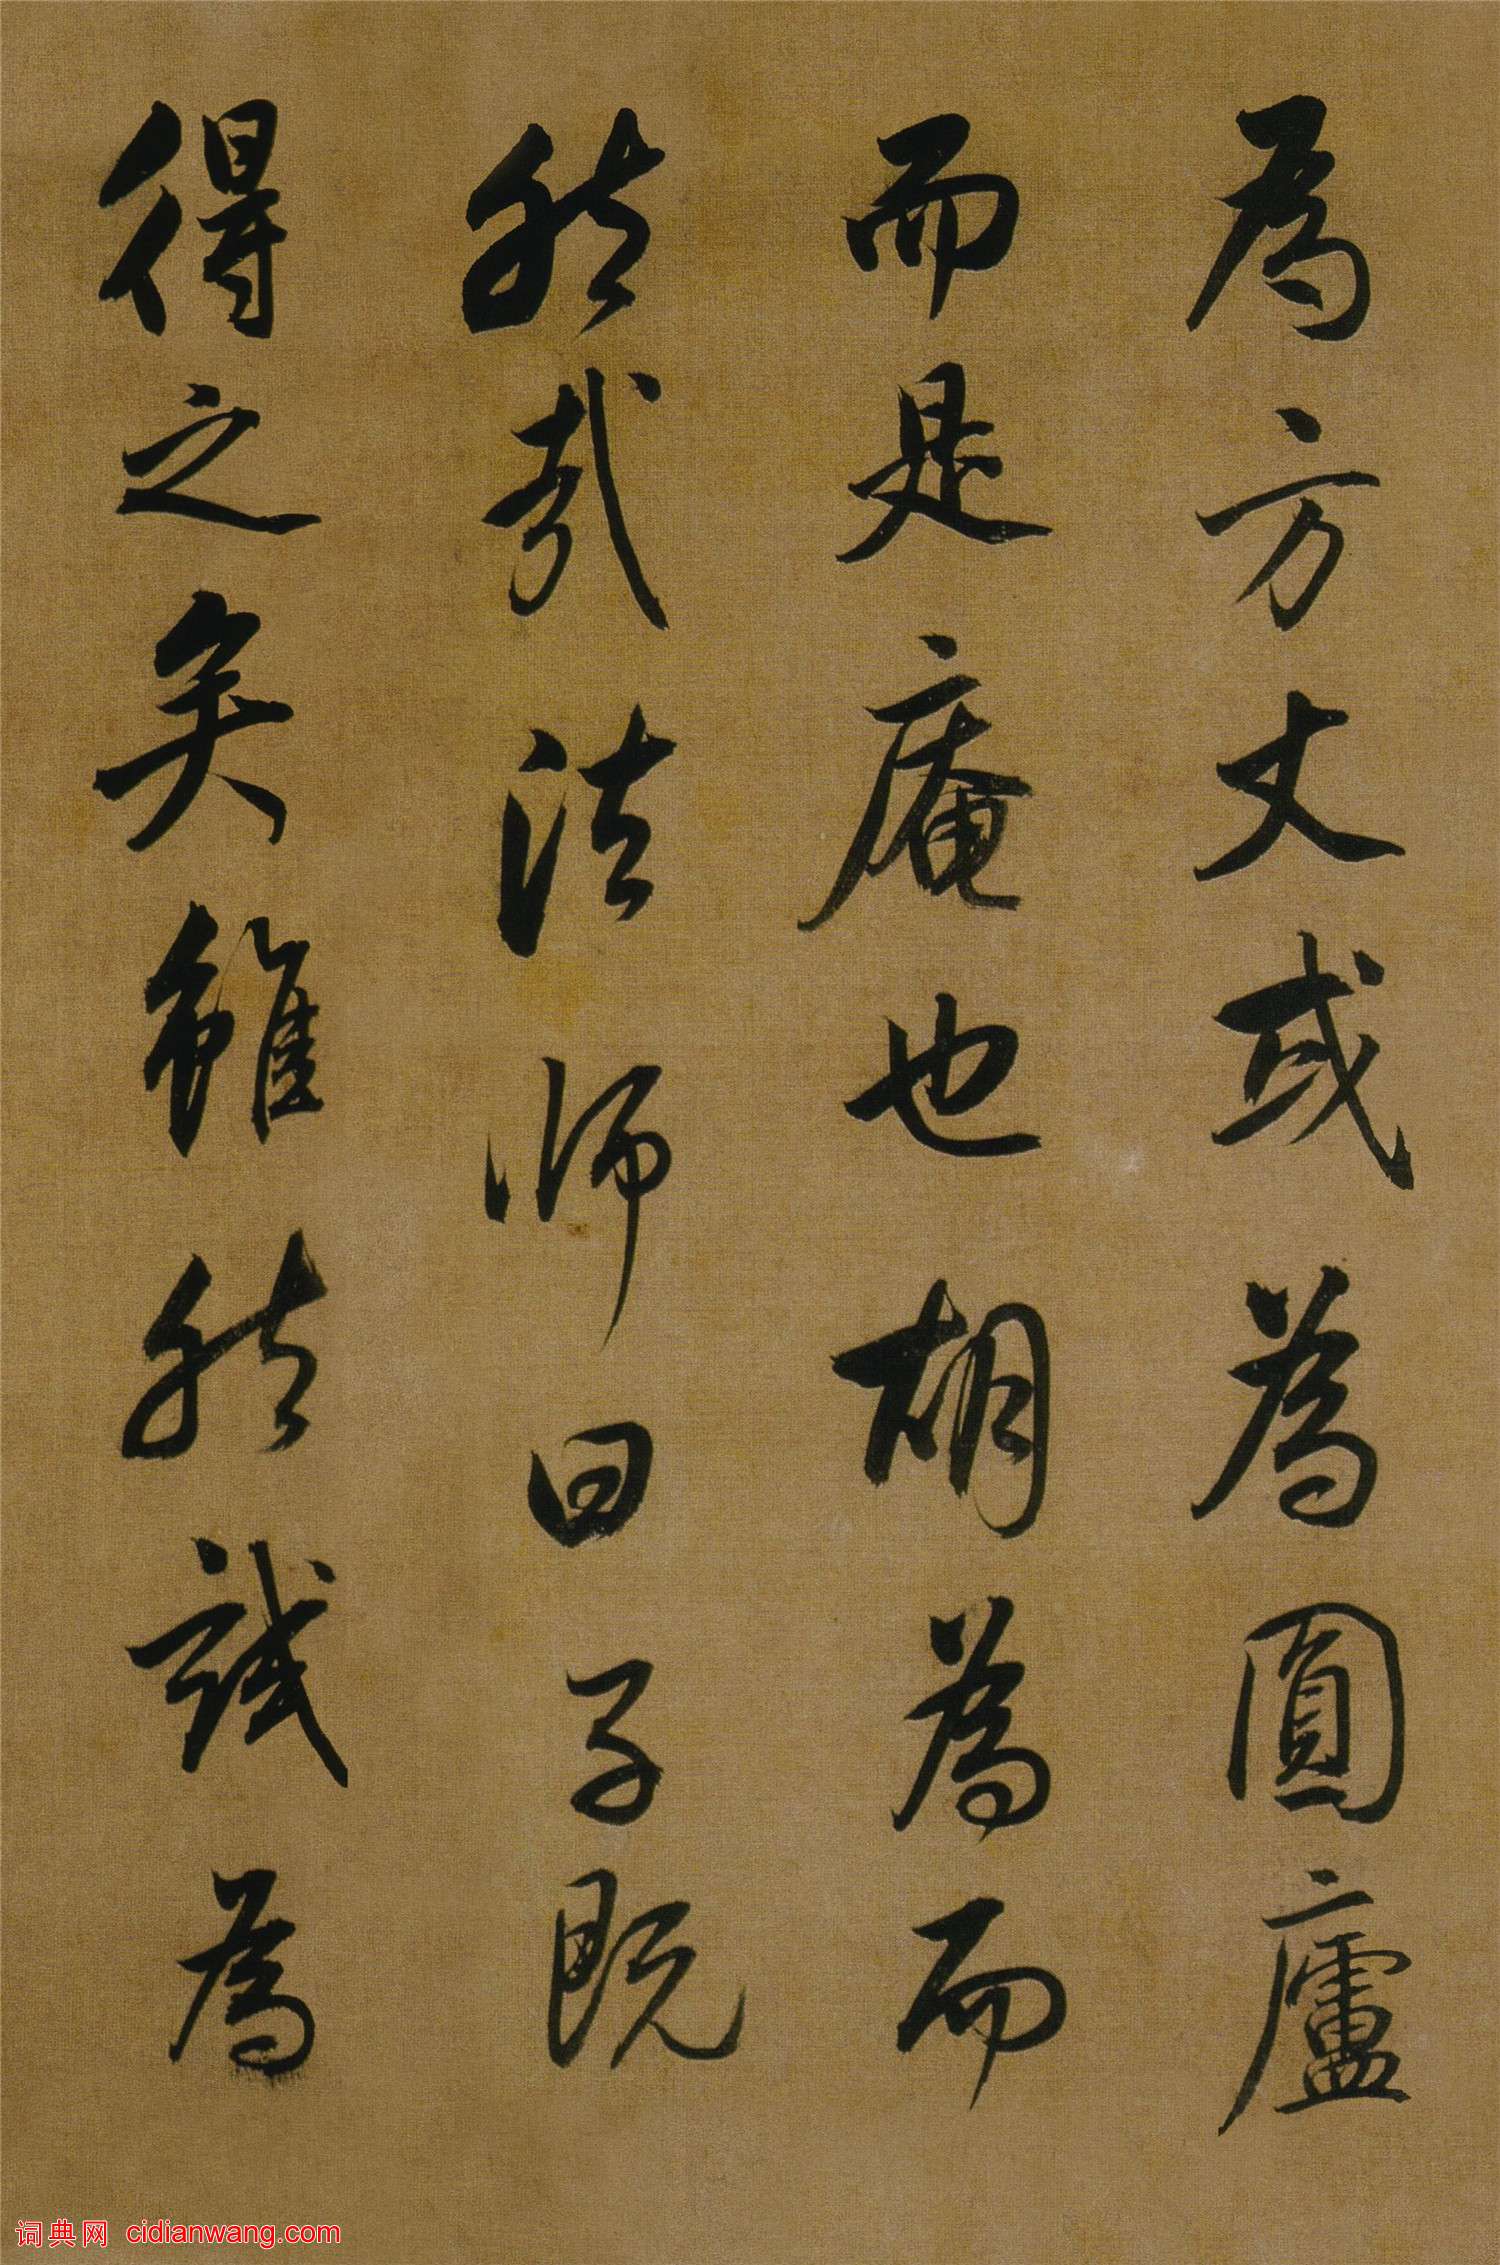 為方丈或為圓廬
而是庵也胡為而
然哉法師曰子既
得之矣雖然試為
词典网 cidianwang.com